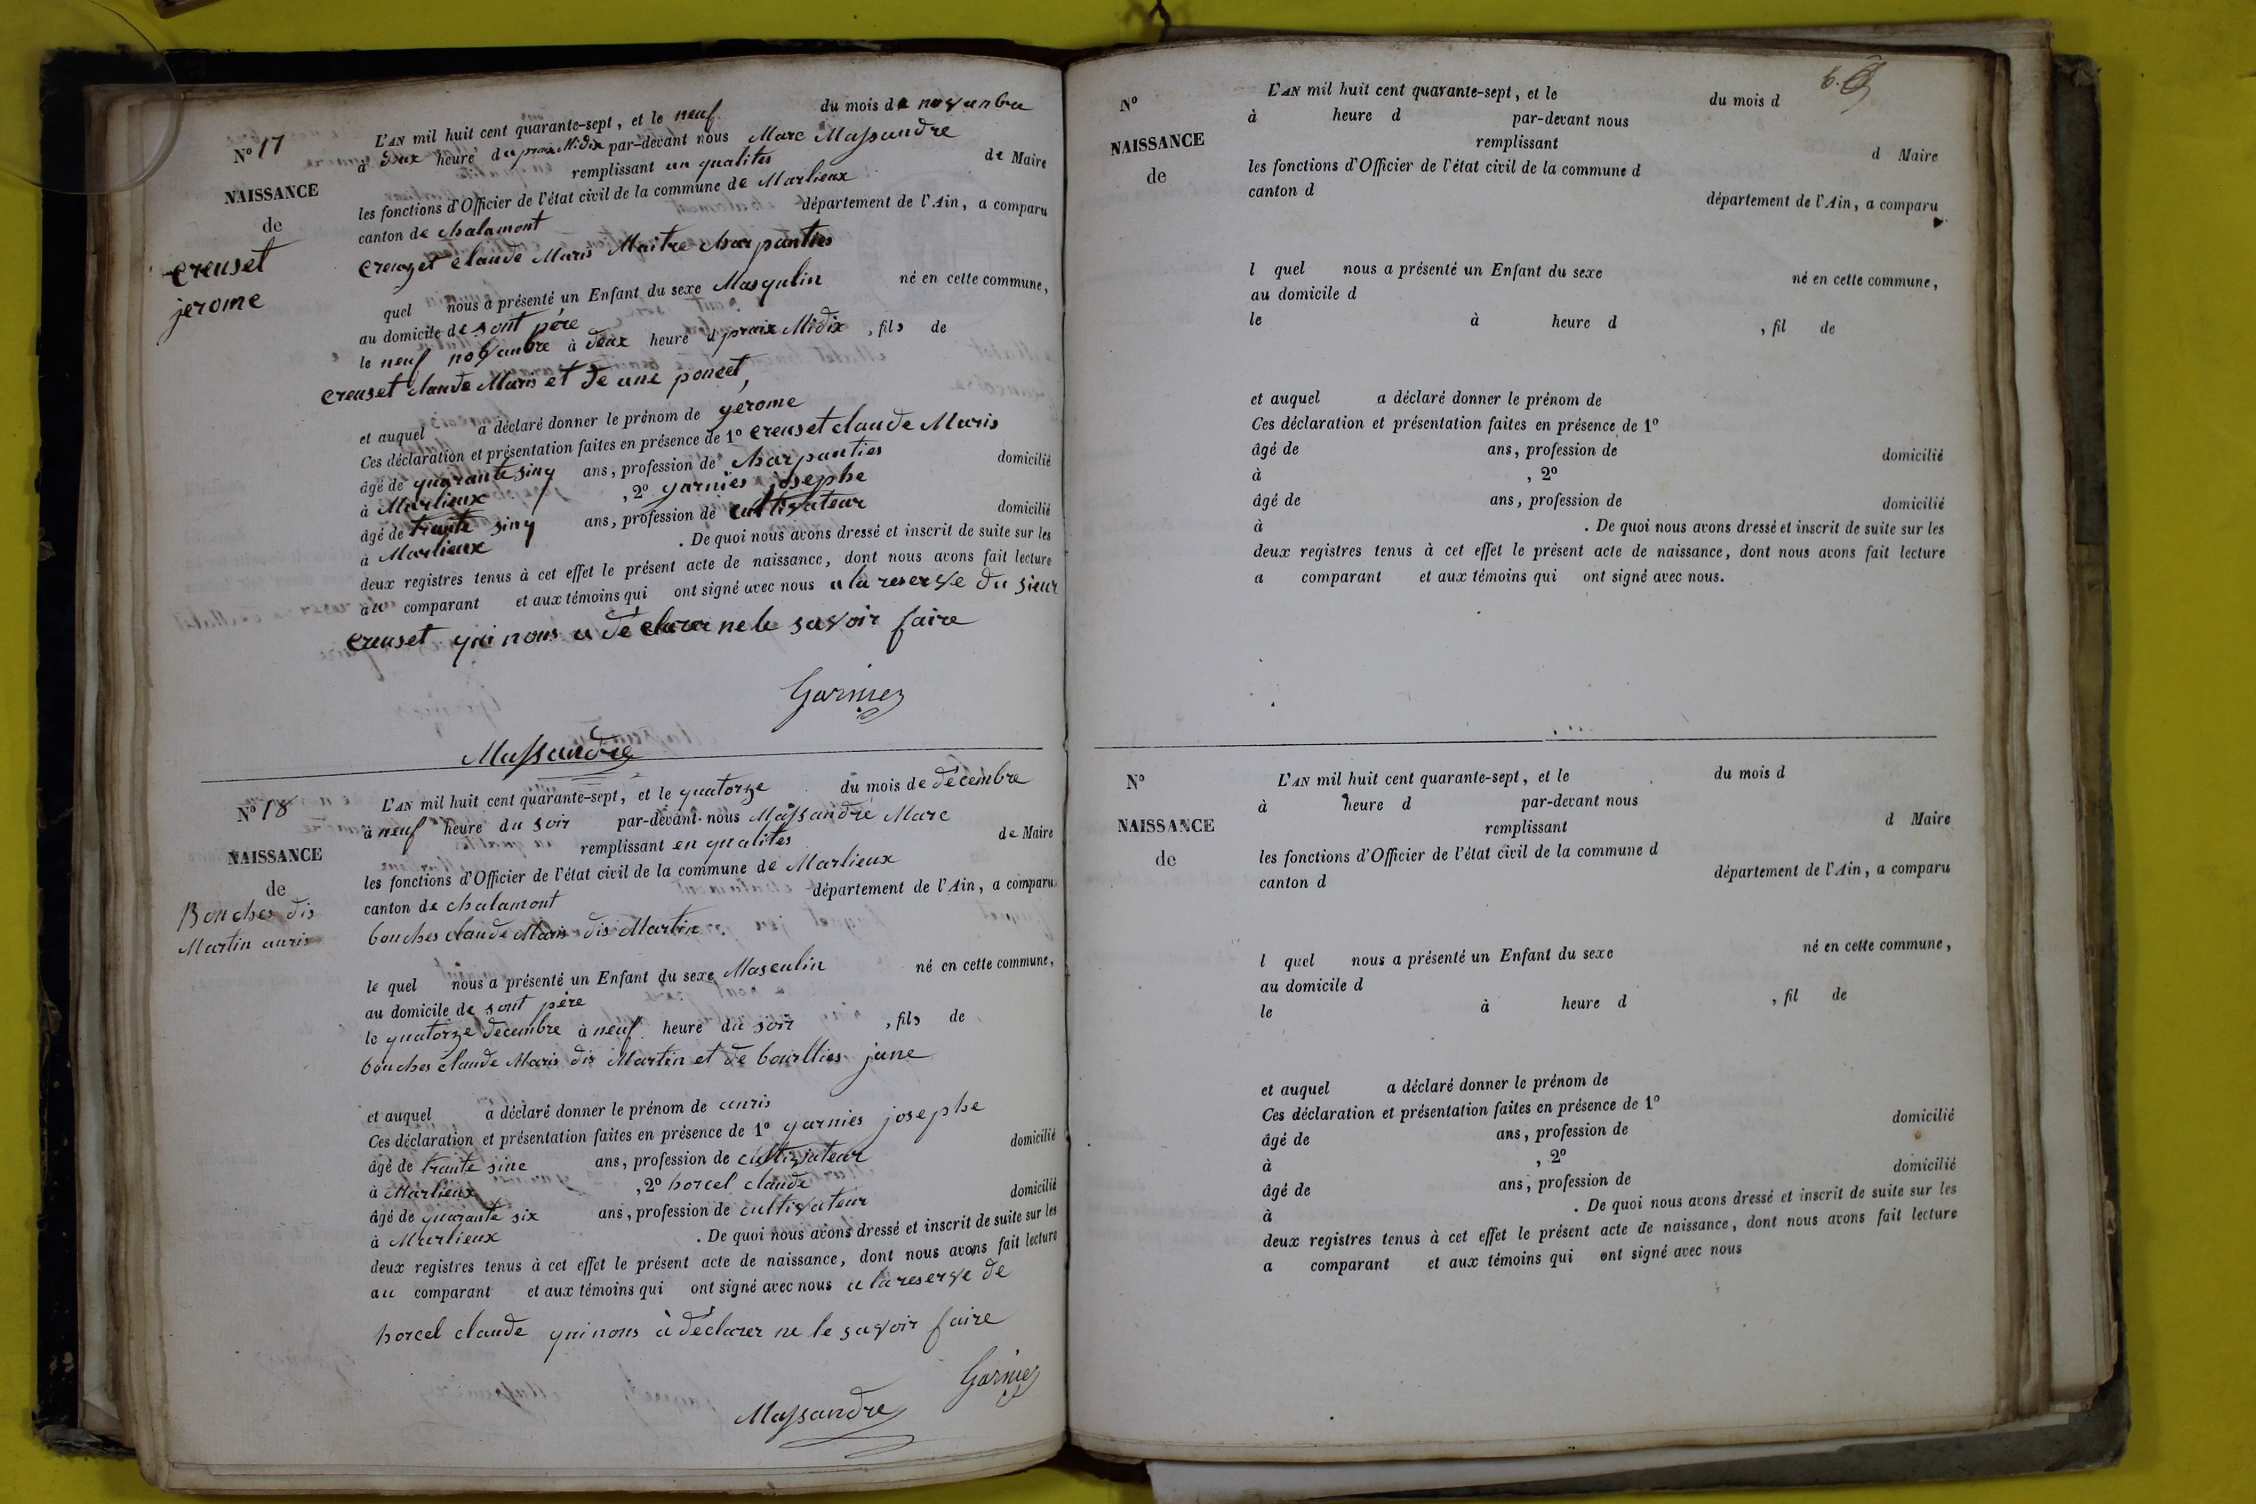 N° 17
NAISSANCE
de
creuset
jerome
L'AN mil huit cent quarante-sept, et le neuf du mois de novanbre
à deux heure du praix Midix par-devant nous Marc Massandre
remplissant en qualites de Maire
les fonctions d'Officier de l'état civil de la commune de Marlieux
canton de chalamont département de l'Ain, a comparu
creuzet claude Maris Maitre charpanties
quel nous a présenté un Enfant du sexe Masqulin né en cette commune,
au domicile de sont pére
le neuf novanbre à deux heure d praix Midix , fils de
creuset claude Maris et de ane poncet,
et auquel a déclaré donner le prénom de gerome
Ces déclaration et présentation faites en présence de 1° creuset claude Maris
âgé de quarante sinq ans, profession de charpanties domicilié
à Marlieux , 2° garnies josephe
âgé de trante sinq ans, profession de cultivateur domicilié
à Marlieux . De quoi nous avons dressé et inscrit de suite sur les
deux registres tenus à cet effet le présent acte de naissance, dont nous avons fait lecture
au comparant et aux témoins qui ont signé avec nous a la reserve du sieur
creuset qui nous a déclarer ne le savoir faire
Garnier
Massandre
N° 18
NAISSANCE
de
Bouches dis
Martin anris
L'AN mil huit cent quarante-sept, et le quatorze du mois de décembre
à neuf heure du soir par-devant nous Massandre Marc
remplissant en qualites de Maire
les fonctions d'Officier de l'état civil de la commune de Marlieux
canton de chalamont département de l'Ain, a comparu
bouches claude Maris dis Martin.
le quel nous a présenté un Enfant du sexe Masculin né en cette commune,
au domicile de sont pére
le quatorze décembre à neuf heure du soir , fils de
bouches claude Maris dis Martin et de bourllies jane
et auquel a déclaré donner le prénom de anris
Ces déclaration et présentation faites en présence de 1° garnies josephe
âgé de trante sinc ans, profession de cultivateur domicilié
à Marlieux , 2° borcel claude
âgé de quarante six ans, profession de cultivateur domicilié
à Marlieux . De quoi nous avons dressé et inscrit de suite sur les
deux registres tenus à cet effet le présent acte de naissance, dont nous avons fait lecture
au comparant et aux témoins qui ont signé avec nous a la reserve de
borcel claude qui nous à déclarer ne le savoir faire
Garnier
Massandre
6.
N°
NAISSANCE
de
L'AN mil huit cent quarante-sept, et le du mois d
à heure d par-devant nous
remplissant d Maire
les fonctions d'Officier de l'état civil de la commune d
canton d département de l'Ain, a comparu
l quel nous a présenté un Enfant du sexe né en cette commune,
au domicile d
le à heure d , fil de
et auquel a déclaré donner le prénom de
Ces déclaration et présentation faites en présence de 1°
âgé de ans, profession de domicilié
à , 2°
âgé de ans, profession de domicilié
à . De quoi nous avons dressé et inscrit de suite sur les
deux registres tenus à cet effet le présent acte de naissance, dont nous avons fait lecture
a comparant et aux témoins qui ont signé avec nous.
N°
NAISSANCE
de
L'AN mil huit cent quarante-sept, et le du mois d
à heure d par-devant nous
remplissant d Maire
les fonctions d'Officier de l'état civil de la commune d
canton d département de l'Ain, a comparu
l quel nous a présenté un Enfant du sexe né en cette commune,
au domicile d
le à heure d , fil de
et auquel a déclaré donner le prénom de
Ces déclaration et présentation faites en présence de 1°
âgé de ans, profession de domicilié
à , 2°
âgé de ans, profession de domicilié
à . De quoi nous avons dressé et inscrit de suite sur les
deux registres tenus à cet effet le présent acte de naissance, dont nous avons fait lecture
a comparant et aux témoins qui ont signé avec nous